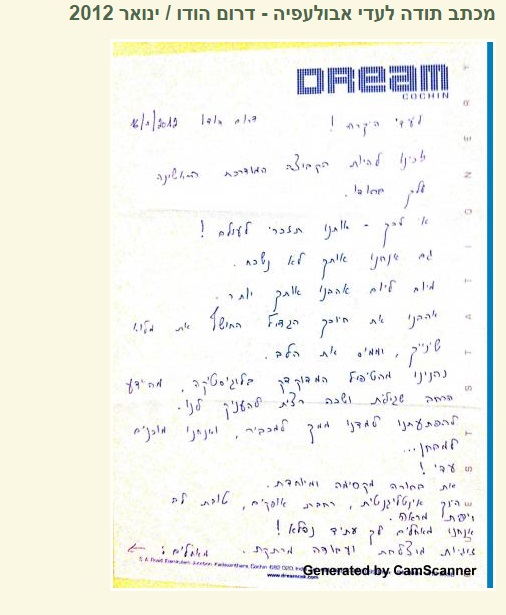 מכתב תודה לעדי אבולעפיה - דרום הודו / ינואר 2012
DREAM
COCHIN
דרום הודו 16/1/2012
עדי היקרה !
זכינו להיות הקבוצה המודרכת הראשונה
שלך בהודו.
אי לכך - אותנו תזכרי לעולם !
גם אנחנו אותך לא נשכח.
מיום ליום אהבנו אותך יותר.
אהבנו את חיוכך הגדול החושף את מלוא
שינייך, וממיס את הלב.
נהנינו מהטיפול המדוקדק בלוגיסטיקה, מהידע
הרחב שגילית ושכה רצית להעניק לנו.
להפתעתנו למדנו ממך למכביר, ואנחנו מוכנים
למבחן...
עדי !
את בחורה מקסימה ומיוחדת.
הינך אינטליגנטית, רחבת אופקים, טובת לב
ויפת מראה.
אנחנו מאחלים לך עתיד נפלא !
זוגיות מוצלחת ועבודה מרתקת. מאחלים :
Junction, Kaloor Cochin
www.dreamcok.com
Generated by CamScanner